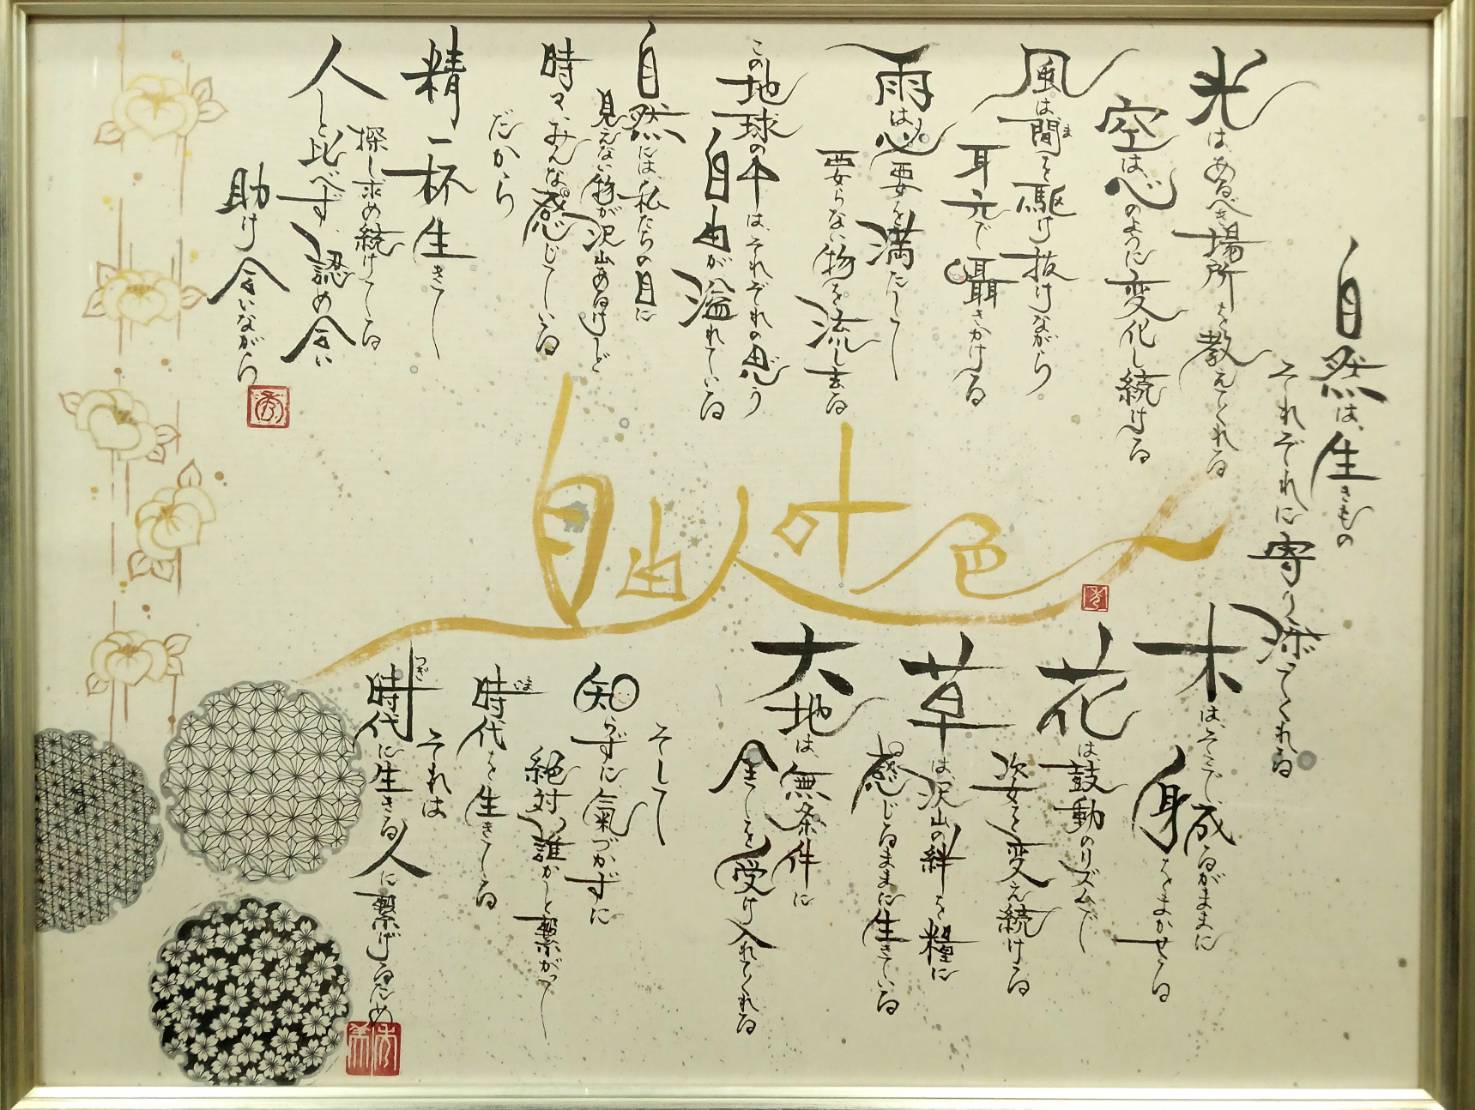 自然は、生きもの
それぞれに寄り添ってくれる
光はあるべき場所を教えてくれる
空は心のように変化し続ける
風は間を駆け抜けながら
ま
耳元で囁きかける
雨は必要を満たして
要らない物を流し去る
この地球の中は、それぞれの思う
自由が溢れている
自然には、私たちの目に
見えない物が沢山あるけれど
時々、みんな感じている
だから
精一杯生きて
探し求め続けてる
人と比べず、認め合い
助け合いながら
自由人叶色
木は、そこで、成るがままに
身をまかせる
花は鼓動のリズムで
次々と変え続ける
草は沢山の絆を糧に
感じるままに生きている
大地は、無条件に
全てを受け入れてくれる
そして
知らずに、氣づかずに
絶対、誰かと繋がって
時代を生きてる
いま
それは
時代に生きる人に繋げるため
つぎ